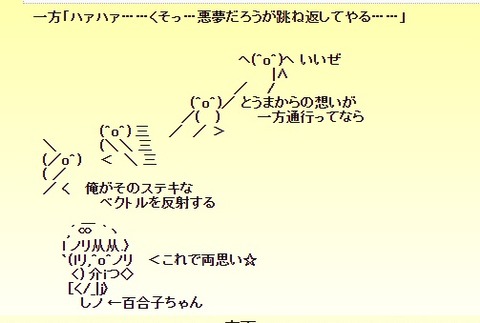 一方「ハァハァ……くそっ…悪夢だろうが跳ね返してやる……」
ヘ(^o^)ヘ いいぜ
|∧
/ /
(^o^)/ とうまからの想いが
/( ) 一方通行ってなら
(^o^) 三 / / >
\ (\\ 三
(/o^) < \ 三
( /
/ く 俺がそのステキな
ベクトルを反射する
,´ ∞ ` ヽ
i ノリ从从.〉
`(iリ,^o^ノリ <これで両思い☆
<) 介iつ◇
[</_|j〉
しノ ←百合子ちゃん